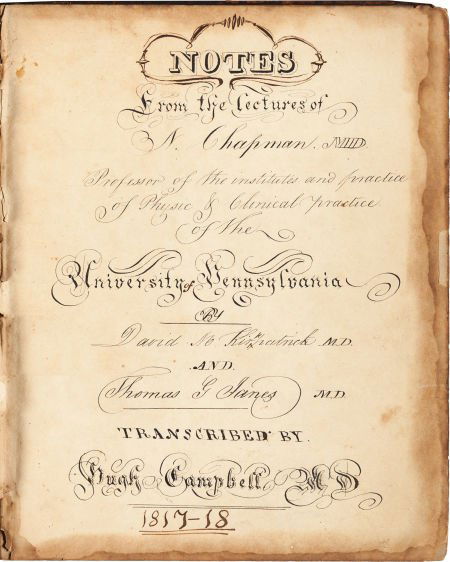 NOTES
From the lectures of
N. Chapman. M.D.
Professor of the institutes and practice
of Physic & Clinical practice
of the
University of Pennsylvania
BY
David Kirkpatrick M.D.
AND.
Thomas G Janes M.D.
TRANSCRIBED BY.
Hugh Campbell MD
1817-18